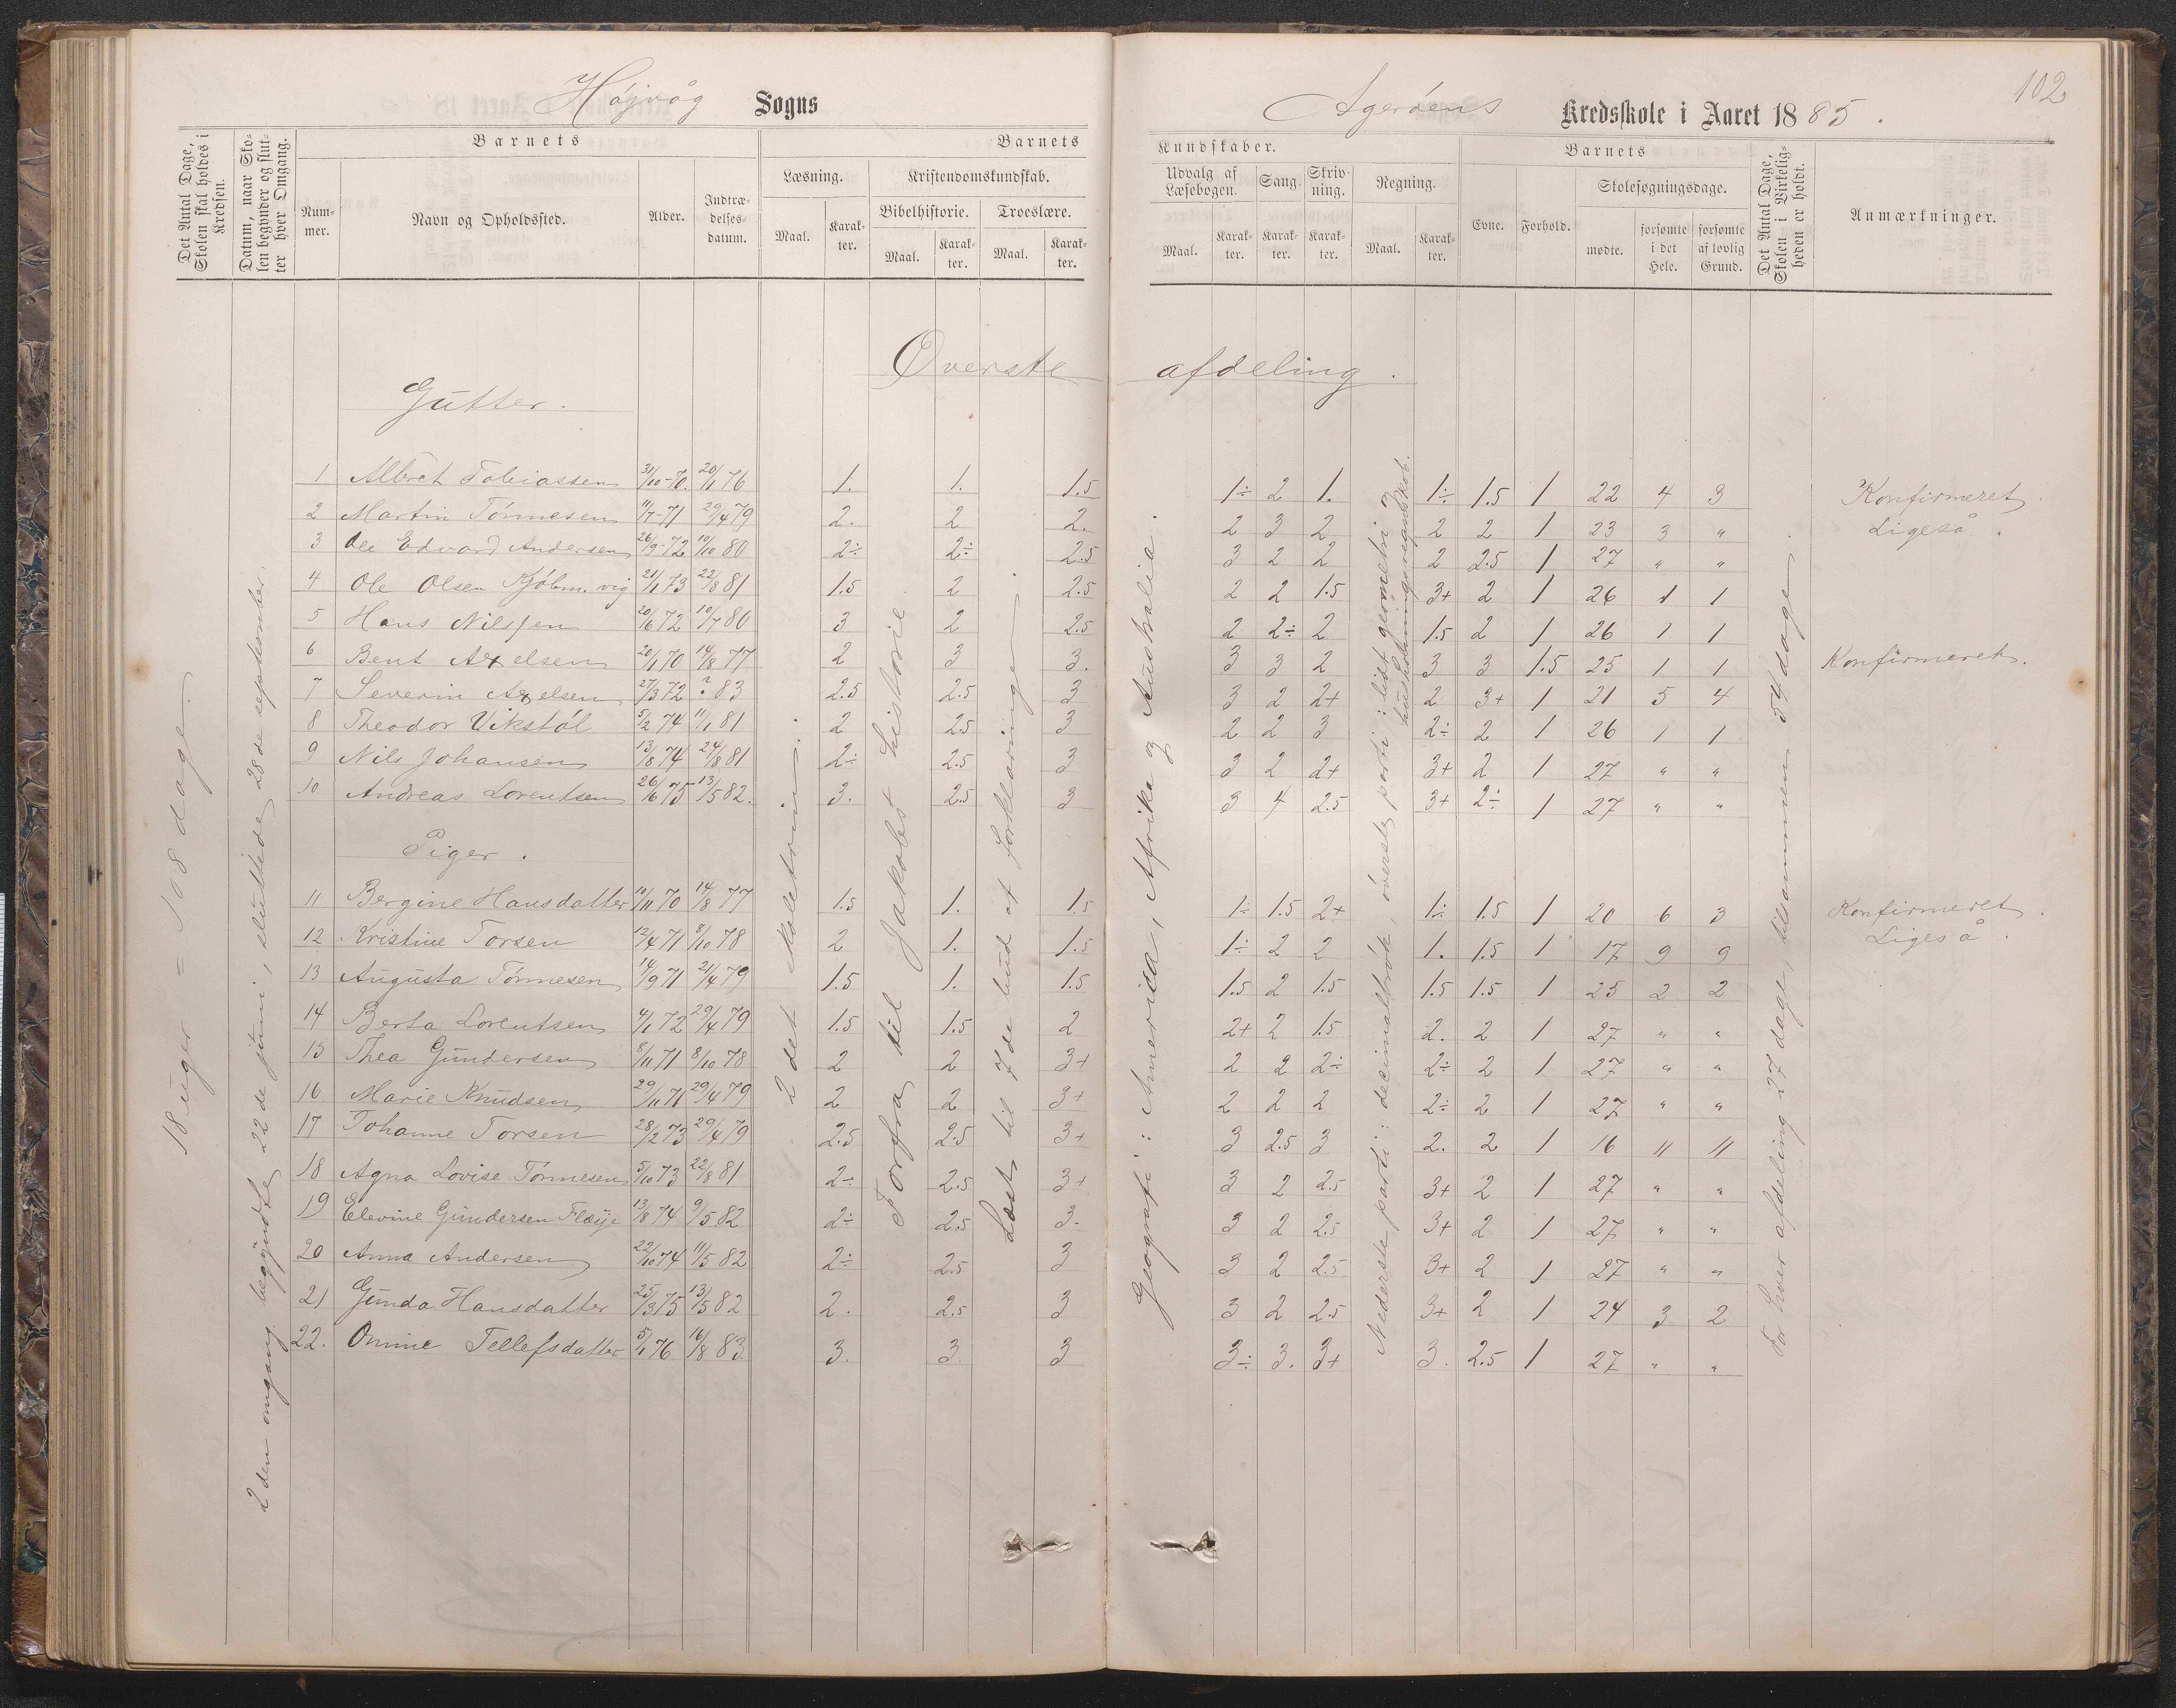 Højvåg Sogns
Agerøens Kredsskole i Aaret 1885.
102
Det Antal Dage, Skolen skal holdes i Kredsen.
Datum, naar Skolen begynder og slutter hver Omgang.
Barnets
Nummer.
Navn og Opholdssted.
Alder.
Indtrædelsesdatum.
Barnets
Læsning.
Maal.
Karakter.
Kristendomskundskab.
Bibelhistorie.
Maal.
Karakter.
Troeslære.
Maal.
Karakter.
Kundskaber.
Udvalg af Læsebogen.
Maal.
Karakter.
Sang.
Karakter.
Skrivning.
Karakter.
Regning.
Maal.
Karakter.
Barnets
Evne.
Forhold.
Skolesøgningsdage.
mødte.
forsømte i det Hele.
forsømte af lovlig Grund.
Det Antal Dage, Skolen i Virkeligheden er holdt.
Anmærkninger.
Øverste afdeling.
18 uger = 108 dage.
2den omgang begyndte 22de juni, sluttede 28de september.
2det skoletrin.
Forfra til Jakobs historie.
Læst til 7de bud af forklaringe.
Geografi: Amerika, Afrika og Australia.
Nederste parti: decimalbrøk, øverste parti: lidt geometri og husholdningsregnskab.
For hver afdeling 27 dage, tilsammen 54 dage.
Gutter.
1 Albret Tobiassen 31/10-70. 20/11 76 1. 1. 1.5 1÷ 2 1. 1÷ 1.5 1 22 4 3 Konfirmeret.
2 Martin Tønnesen 11/7-71 29/4 79 2. 2 2. 2 3 2 2 2 1 23 3 " Ligeså.
3 Ole Edvard Andersen 26/9-72 10/10 80 2÷ 2÷ 2.5 3 2 2 2 2.5 1 27 " "
4 Ole Olsen Kjøbm.vig 21/1 73 22/8 81 1.5 2 2.5 2 2 1.5 3+ 2 1 26 1 1
5 Hans Nilssen 20/6 72 10/7 80 3 2 2.5 2 2÷ 2 1.5 2 1 26 1 1
6 Bent Axelsen 20/1 70 14/8 77 2 3 3. 3 3 2 3 3 1.5 25 1 1 Konfirmeret.
7 Severin Axelsen 27/3 72 ? 83 2.5 2.5 3 3 2 2+ 2 3+ 1 21 5 4
8 Theodor Vikstøl 5/2 74 11/1 81 2 2.5 3 2 2 3 2÷ 2 1 26 1 1
9 Nils Johansen 13/8 74 24/8 81 2÷ 2.5 3 3 2 2+ 3+ 2 1 27 " "
10 Andreas Lorentsen 26/6 75 13/5 82. 3. 2.5 3 3 4 2.5 3+ 2÷ 1 27 " "
Piger.
11 Bergine Hansdatter 10/11 70 14/8 77 1.5 1. 1.5 1÷ 1.5 2+ 1÷ 1.5 1 20 6 3 Konfirmeret.
12 Kristine Torsen 12/4 71 8/10 78 2 1. 1.5 1÷ 2 2 1. 1.5 1 17 9 9 Ligeså.
13 Augusta Tønnesen 14/9 71 21/4 79 1.5 1. 1.5 1.5 2 1.5 1.5 1.5 1 25 2 2
14 Berta Lorentsen 4/1 72 29/4 79 1.5 1.5 2 2+ 2 1.5 2. 2 1 27 " "
15 Thea Gundersen 8/11 71 8/10 78 2 2 3+ 2 2 2÷ 2÷ 2 1 27 " "
16 Marie Knudsen 29/11 71 29/4 79 2 2 3+ 2 2 2 2÷ 2 1 27 " "
17 Johanne Torsen 28/2 73 29/4 79 2.5 2.5 3+ 3 2.5 3 2. 2 1 16 11 11
18 Agna Lovise Tønnesen 5/10 73 22/8 81 2÷ 2.5 3+ 3 2 2.5 3+ 2 1 27 " "
19 Elevine Gundersen 13/8 74 9/5 82 2÷ 2.5 3. 3 2 2.5 3+ 2 1 27 " "
20 Anna Andersen 22/10 74 11/5 82 2÷ 2.5 3 3 2 2.5 3+ 2 1 27 " "
21 Gunda Hansdatter 25/3 75 13/5 82 2. 2.5 3 3 2 2.5 3+ 2 1 24 3 2
22. Omine Tellefsdatter 5/1 76 16/8 83 3. 3. 3 3÷ 3. 3+ 3. 2.5 1 27 " "